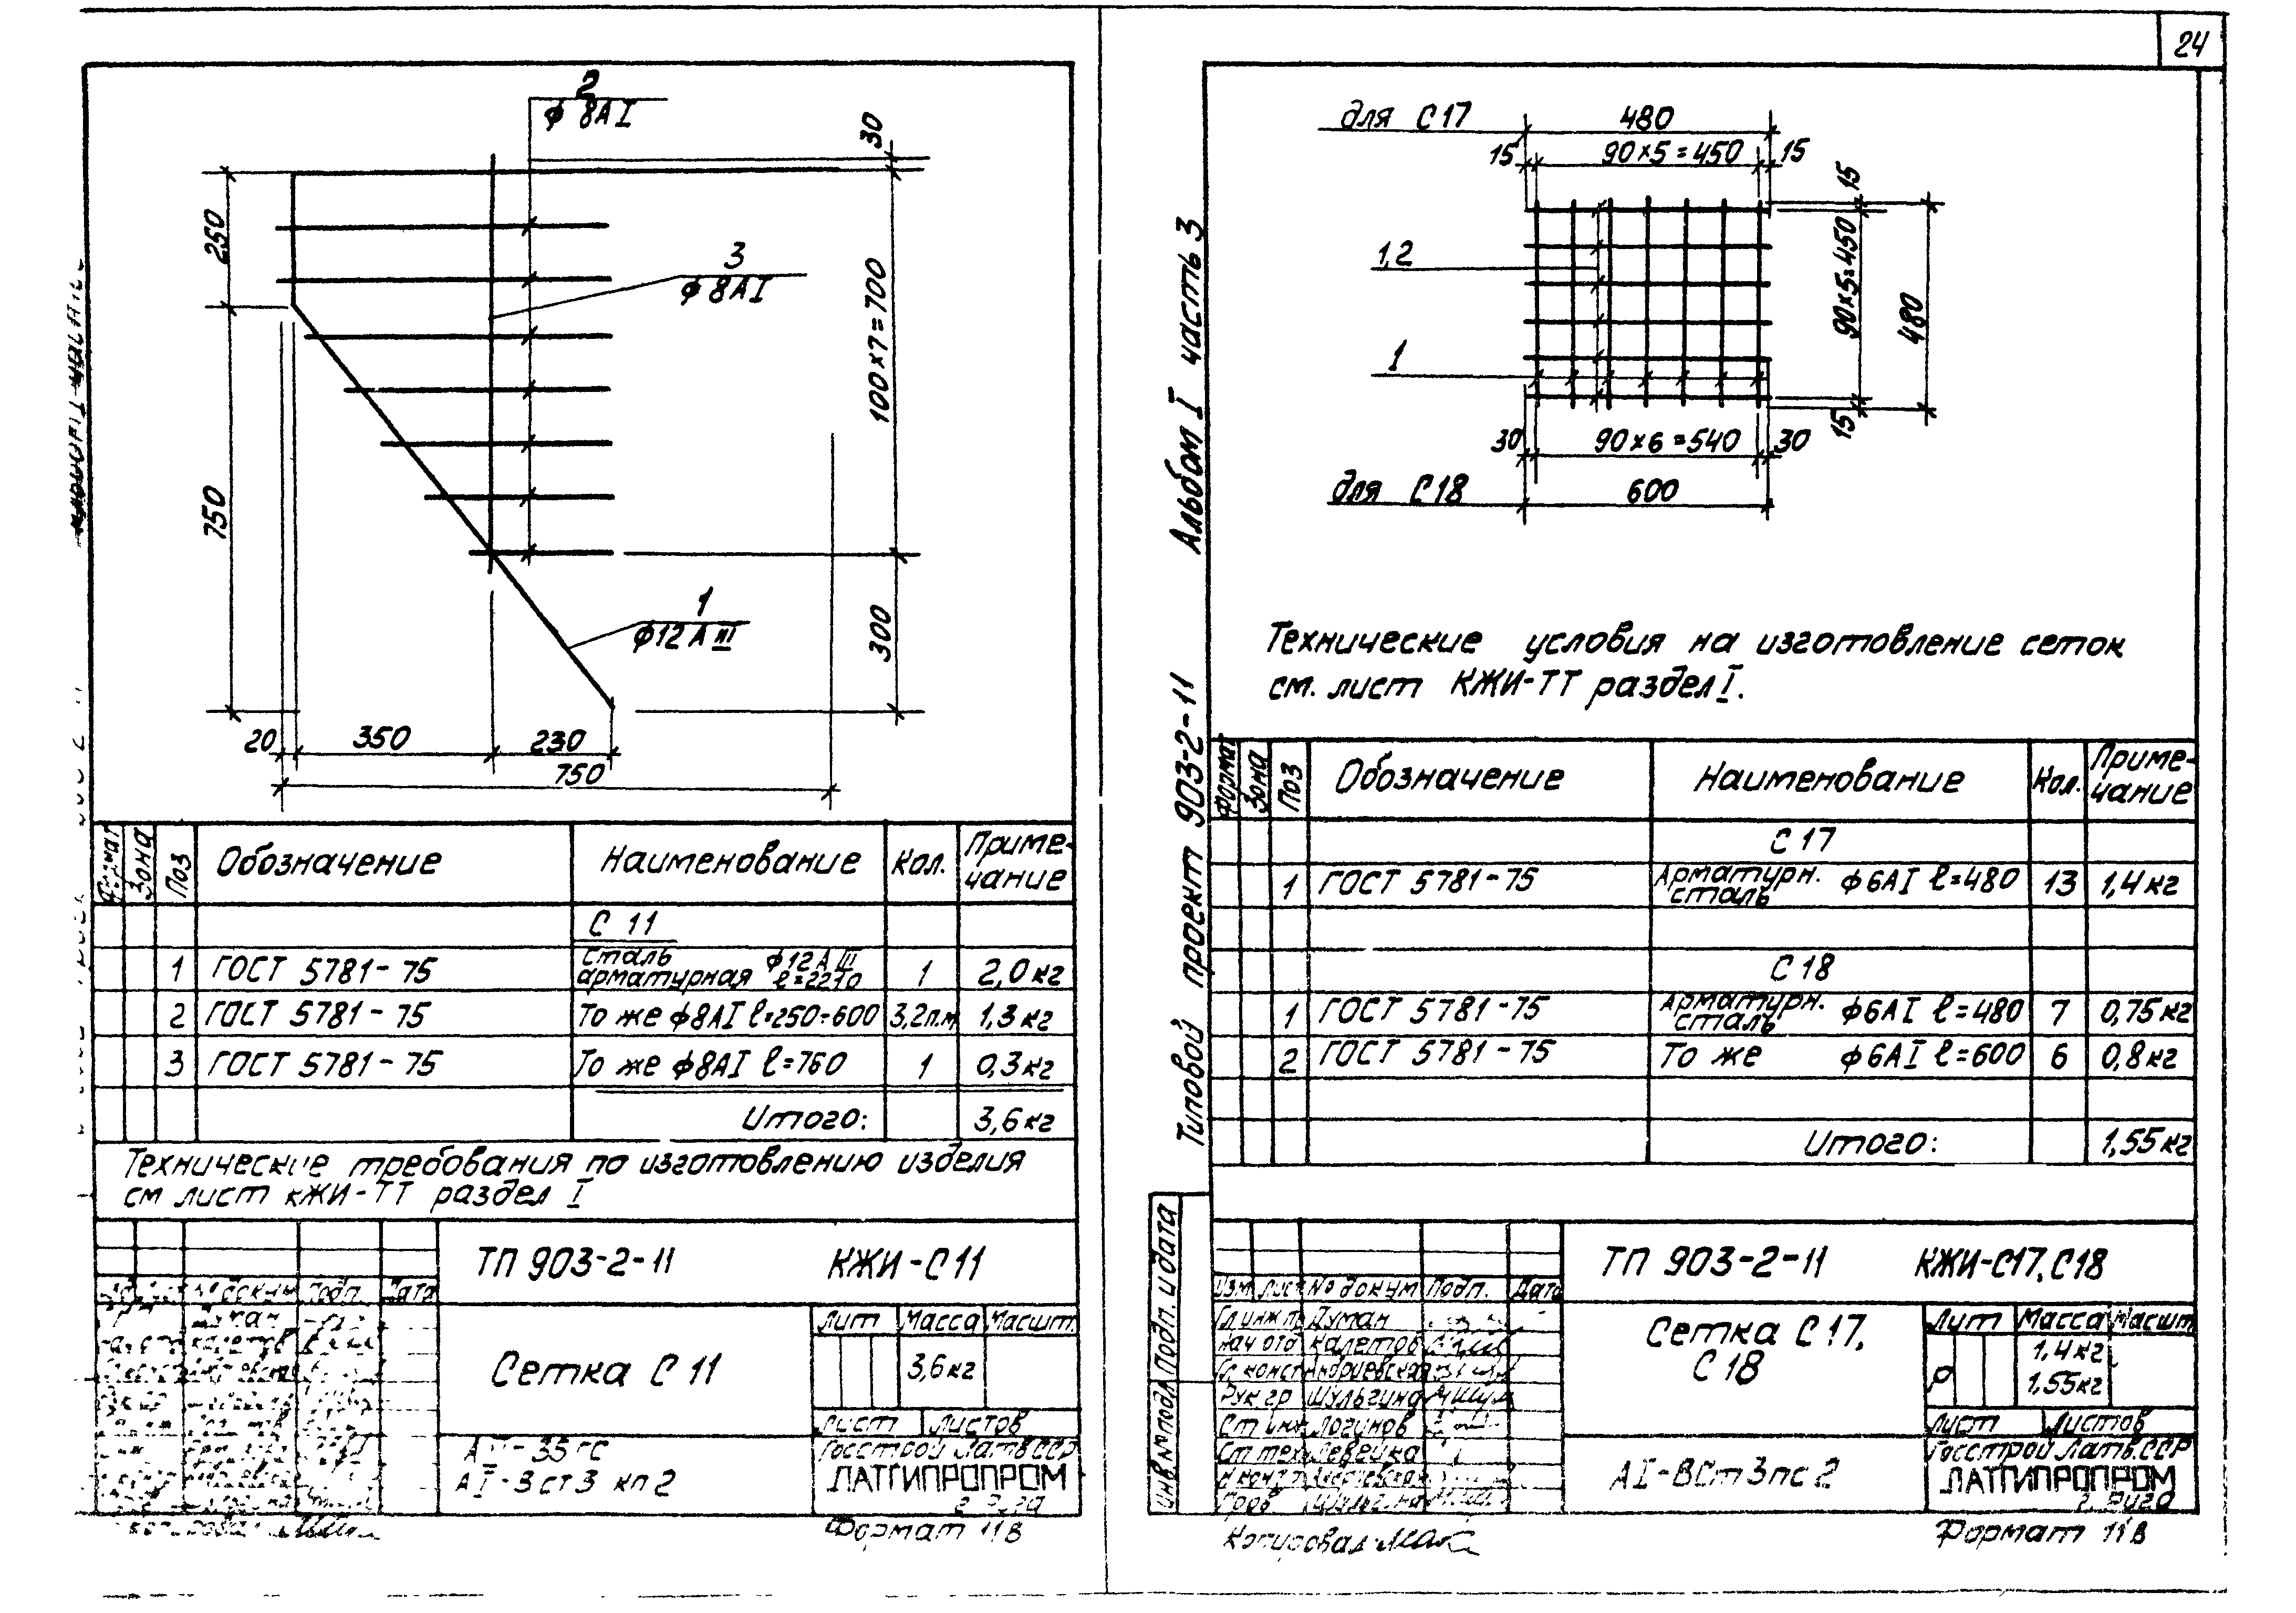 24
2
ф 8АI
30
250
3
ф 8АI
100×7=700
750
1
ф12АIII
300
20
350
230
750
Зона
Поз
Обозначение
Наименование
Кол.
Приме-
чание
С 11
1 ГОСТ 5781-75 сталь арматурная ф12АIII ℓ=2210 1 2,0кг
2 ГОСТ 5781-75 То же ф8АI ℓ=250÷600 3,2п.м 1,3кг
3 ГОСТ 5781-75 То же ф8АI ℓ=760 1 0,3кг
Итого: 3,6кг
Технические требования по изготовлению изделия
см лист КЖИ-ТТ раздел I
ТП 903-2-11 КЖИ-С11
докум Подп. Дата
Сетка С 11
Лит Масса Масшт.
3,6кг
Лист Листов
35ГС
АI-3ст3 кп2
Госстрой Латв ССР
ЛАТГИПРОПРОМ
г. Рига
Формат 11В
для С17
480
15
90×5=450
15
15
90×5=450
480
15
1,2
1
30
90×6=540
30
для С18
600
Альбом I часть 3
Типовой проект 903-2-11
Технические условия на изготовление сеток
см. лист КЖИ-ТТ раздел I.
Формат
Зона
Поз
Обозначение
Наименование
Кол.
Приме-
чание
С 17
1 ГОСТ 5781-75 Арматурн. сталь ф6АI ℓ=480 13 1,4кг
С 18
1 ГОСТ 5781-75 Арматурн. сталь ф6АI ℓ=480 7 0,75кг
2 ГОСТ 5781-75 То же ф6АI ℓ=600 6 0,8кг
Итого: 1,55кг
Подп. и дата
ИНВ № подл
ТП 903-2-11 КЖИ-С17, С18
Изм Лист № докум Подп. Дата
Гл инж п Думан
Нач отд Калетов
Гл конст
Рук гр Шульгина
Ст инж Логинов
Ст тех Левейка
Сетка С 17,
С 18
Лит Масса Масшт
Р
1,4кг
1,55кг
Лист Листов
АI-ВСт3пс2
Госстрой Латв.ССР
ЛАТГИПРОПРОМ
г. Рига
Копировал
Формат 11В